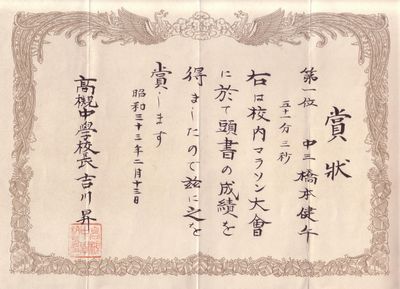 賞狀
第一位 中三 橋本健午
五十一分三秒
右は校内マラソン大會
に於て頭書の成績を
得ましたので茲に之を
賞します
昭和三十三年二月十三日
高槻中學校長吉川昇